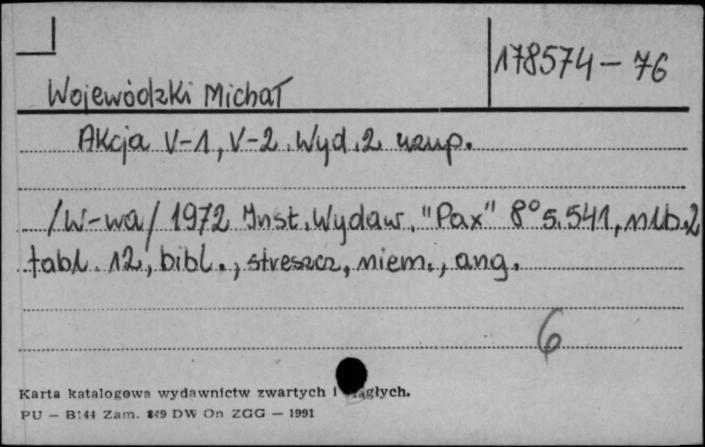 178574 - 76
Wojewódzki Michał
Akcja V-1, V-2. Wyd. 2. uzup.
/W-wa/ 1972 Inst. Wydaw. "Pax" 8° s. 541, nlb. 2
tabl. 12, bibl., streszcz, niem., ang.
6
Karta katalogowa wydawnictw zwartych i ciągłych.
PU — B144 Zam. 849 DW On ZGG — 1991